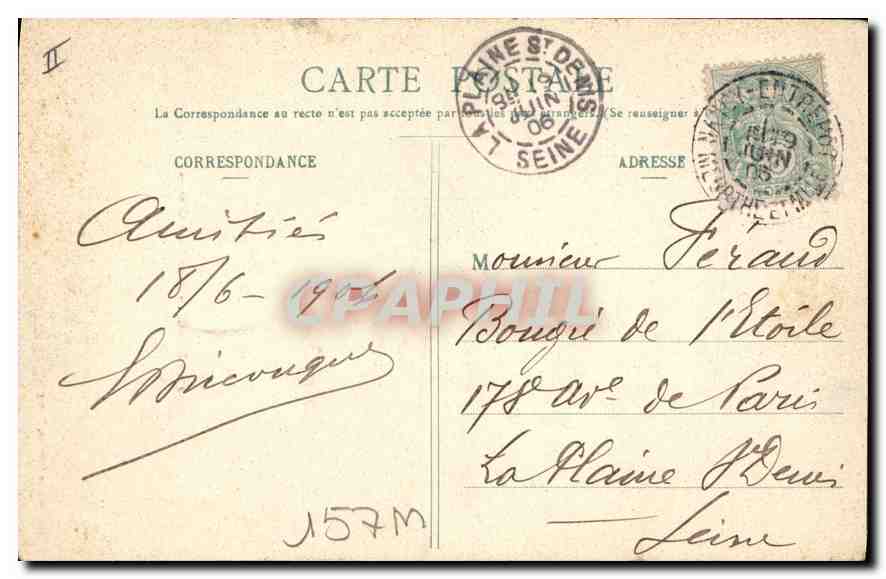 II
CARTE POSTALE
La Correspondance au recto n'est pas acceptée par tous les pays étrangers. (Se renseigner à
CORRESPONDANCE
ADRESSE
LA PLAINE ST DENIS
JUIN
06
SEINE
NANCY-ENTREPOT
JUIN
06
MEURTHE ET M
Amitiés
18/6 - 190
Monsieur Féraud
Bougie de l'Etoile
178 Ave de Paris
La Plaine St Denis
Seine
CPAPHIL
157M